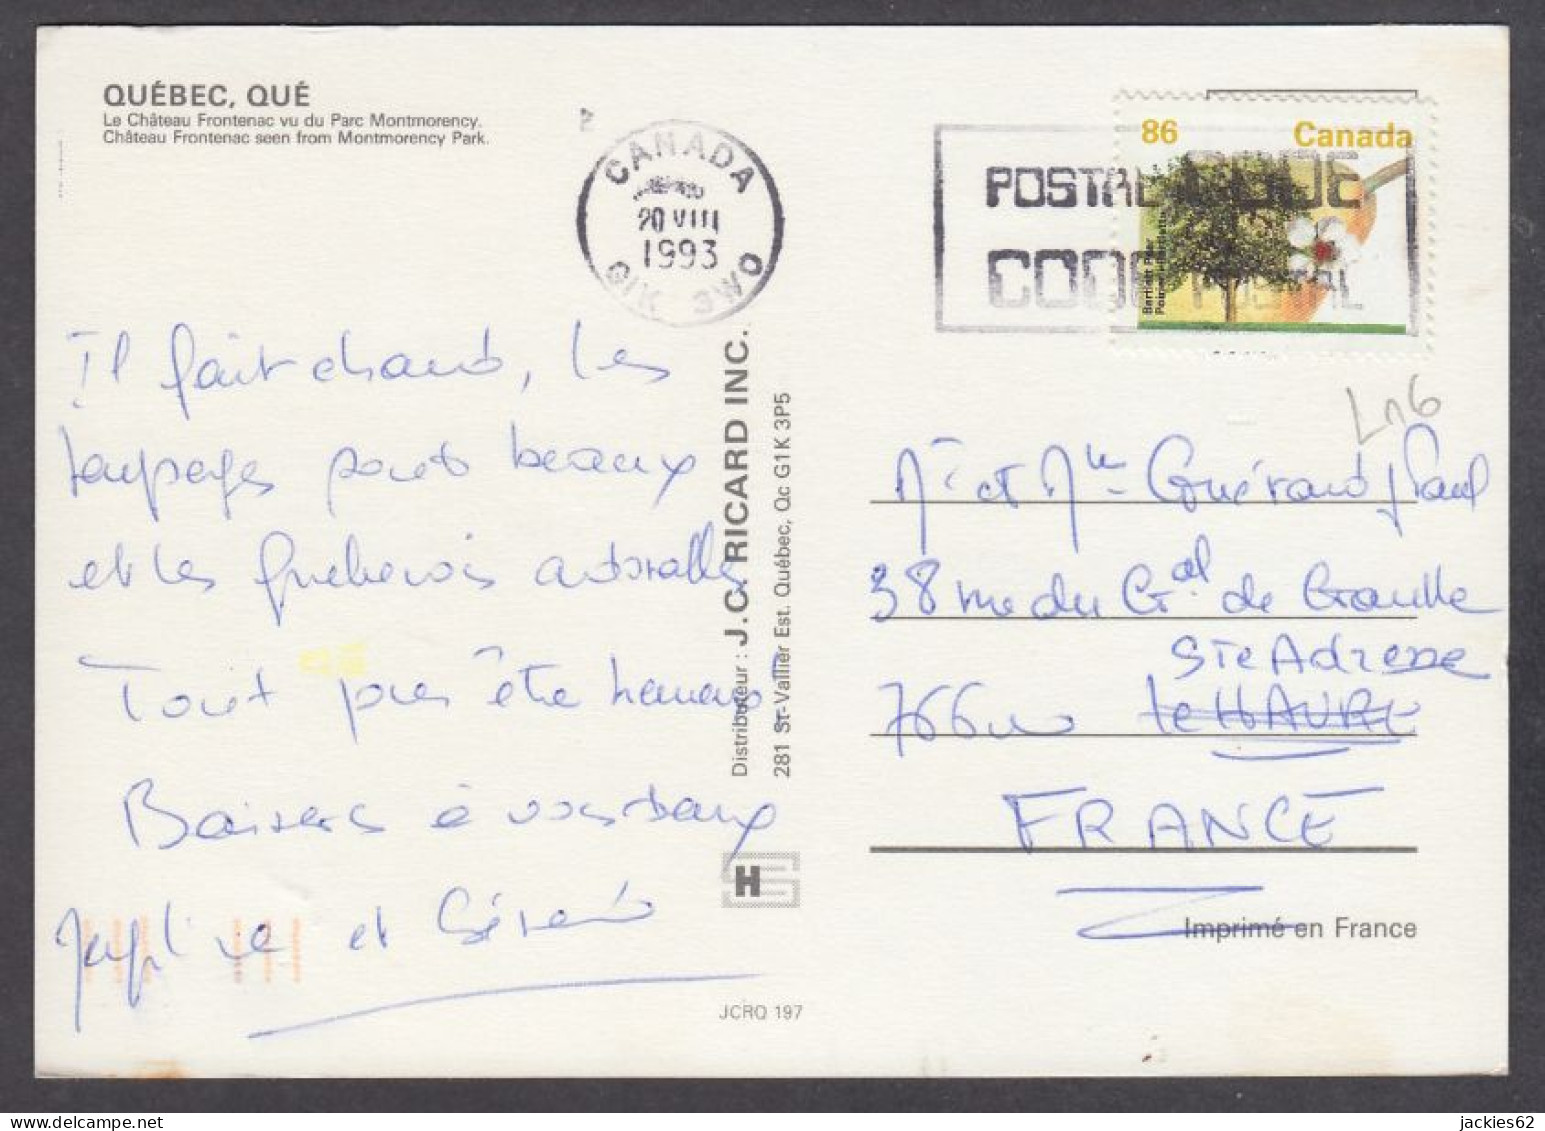 QUÉBEC, QUÉ
Le Château Frontenac vu du Parc Montmorency.
Château Frontenac seen from Montmorency Park.
CANADA
20 VIII
1993
G1K 3W0
POSTAL CODE
CODE POSTAL
86 Canada
Bartlett Pear
Il fait chaud, les
paysages sont beaux
et les Québecois adorables
Tout pour être heureux
Baisers à vous deux
et Gérard
Distributeur : J.C. RICARD INC.
281 St-Vallier Est. Québec, Qc G1K 3P5
Mr et Mme Guérand Paul
38 rue du Gal de Gaulle
Ste Adresse
76600 le HAVRE
FRANCE
Imprimé en France
JCRQ 197
jackies62